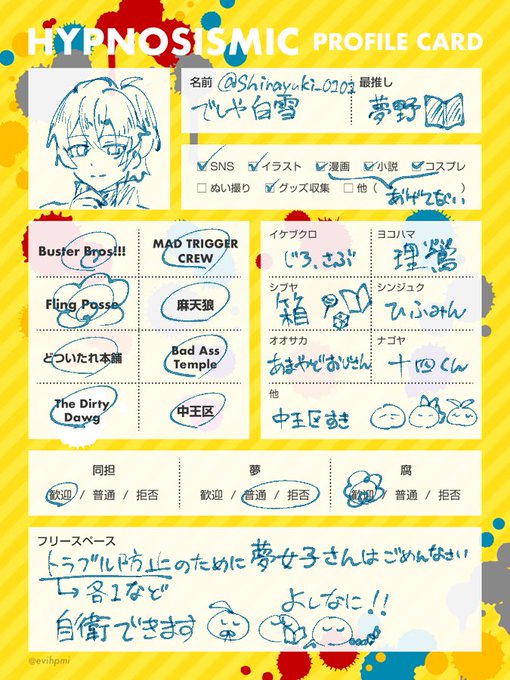 HYPNOSISMIC PROFILE CARD
名前 @Shirayuki_0101 最推し
でしや白雪 夢野
SNS イラスト 漫画 小説 コスプレ
ぬい撮り グッズ収集 他( )
あげてない
Buster Bros!!! MAD TRIGGER CREW
Fling Posse 麻天狼
どついたれ本舗 Bad Ass Temple
The Dirty Dawg 中王区
イケブクロ ヨコハマ
じろ、さぶ 理鶯
シブヤ シンジュク
箱 ひふみん
オオサカ ナゴヤ
あまやどおじさん 十四くん
他
中王区すき
同担 夢 腐
歓迎 / 普通 / 拒否 歓迎 / 普通 / 拒否 歓迎 / 普通 / 拒否
フリースペース
トラブル防止のために夢女子さんはごめんなさい
↳各1など よしなに!!
自衛できます
@evihpmi